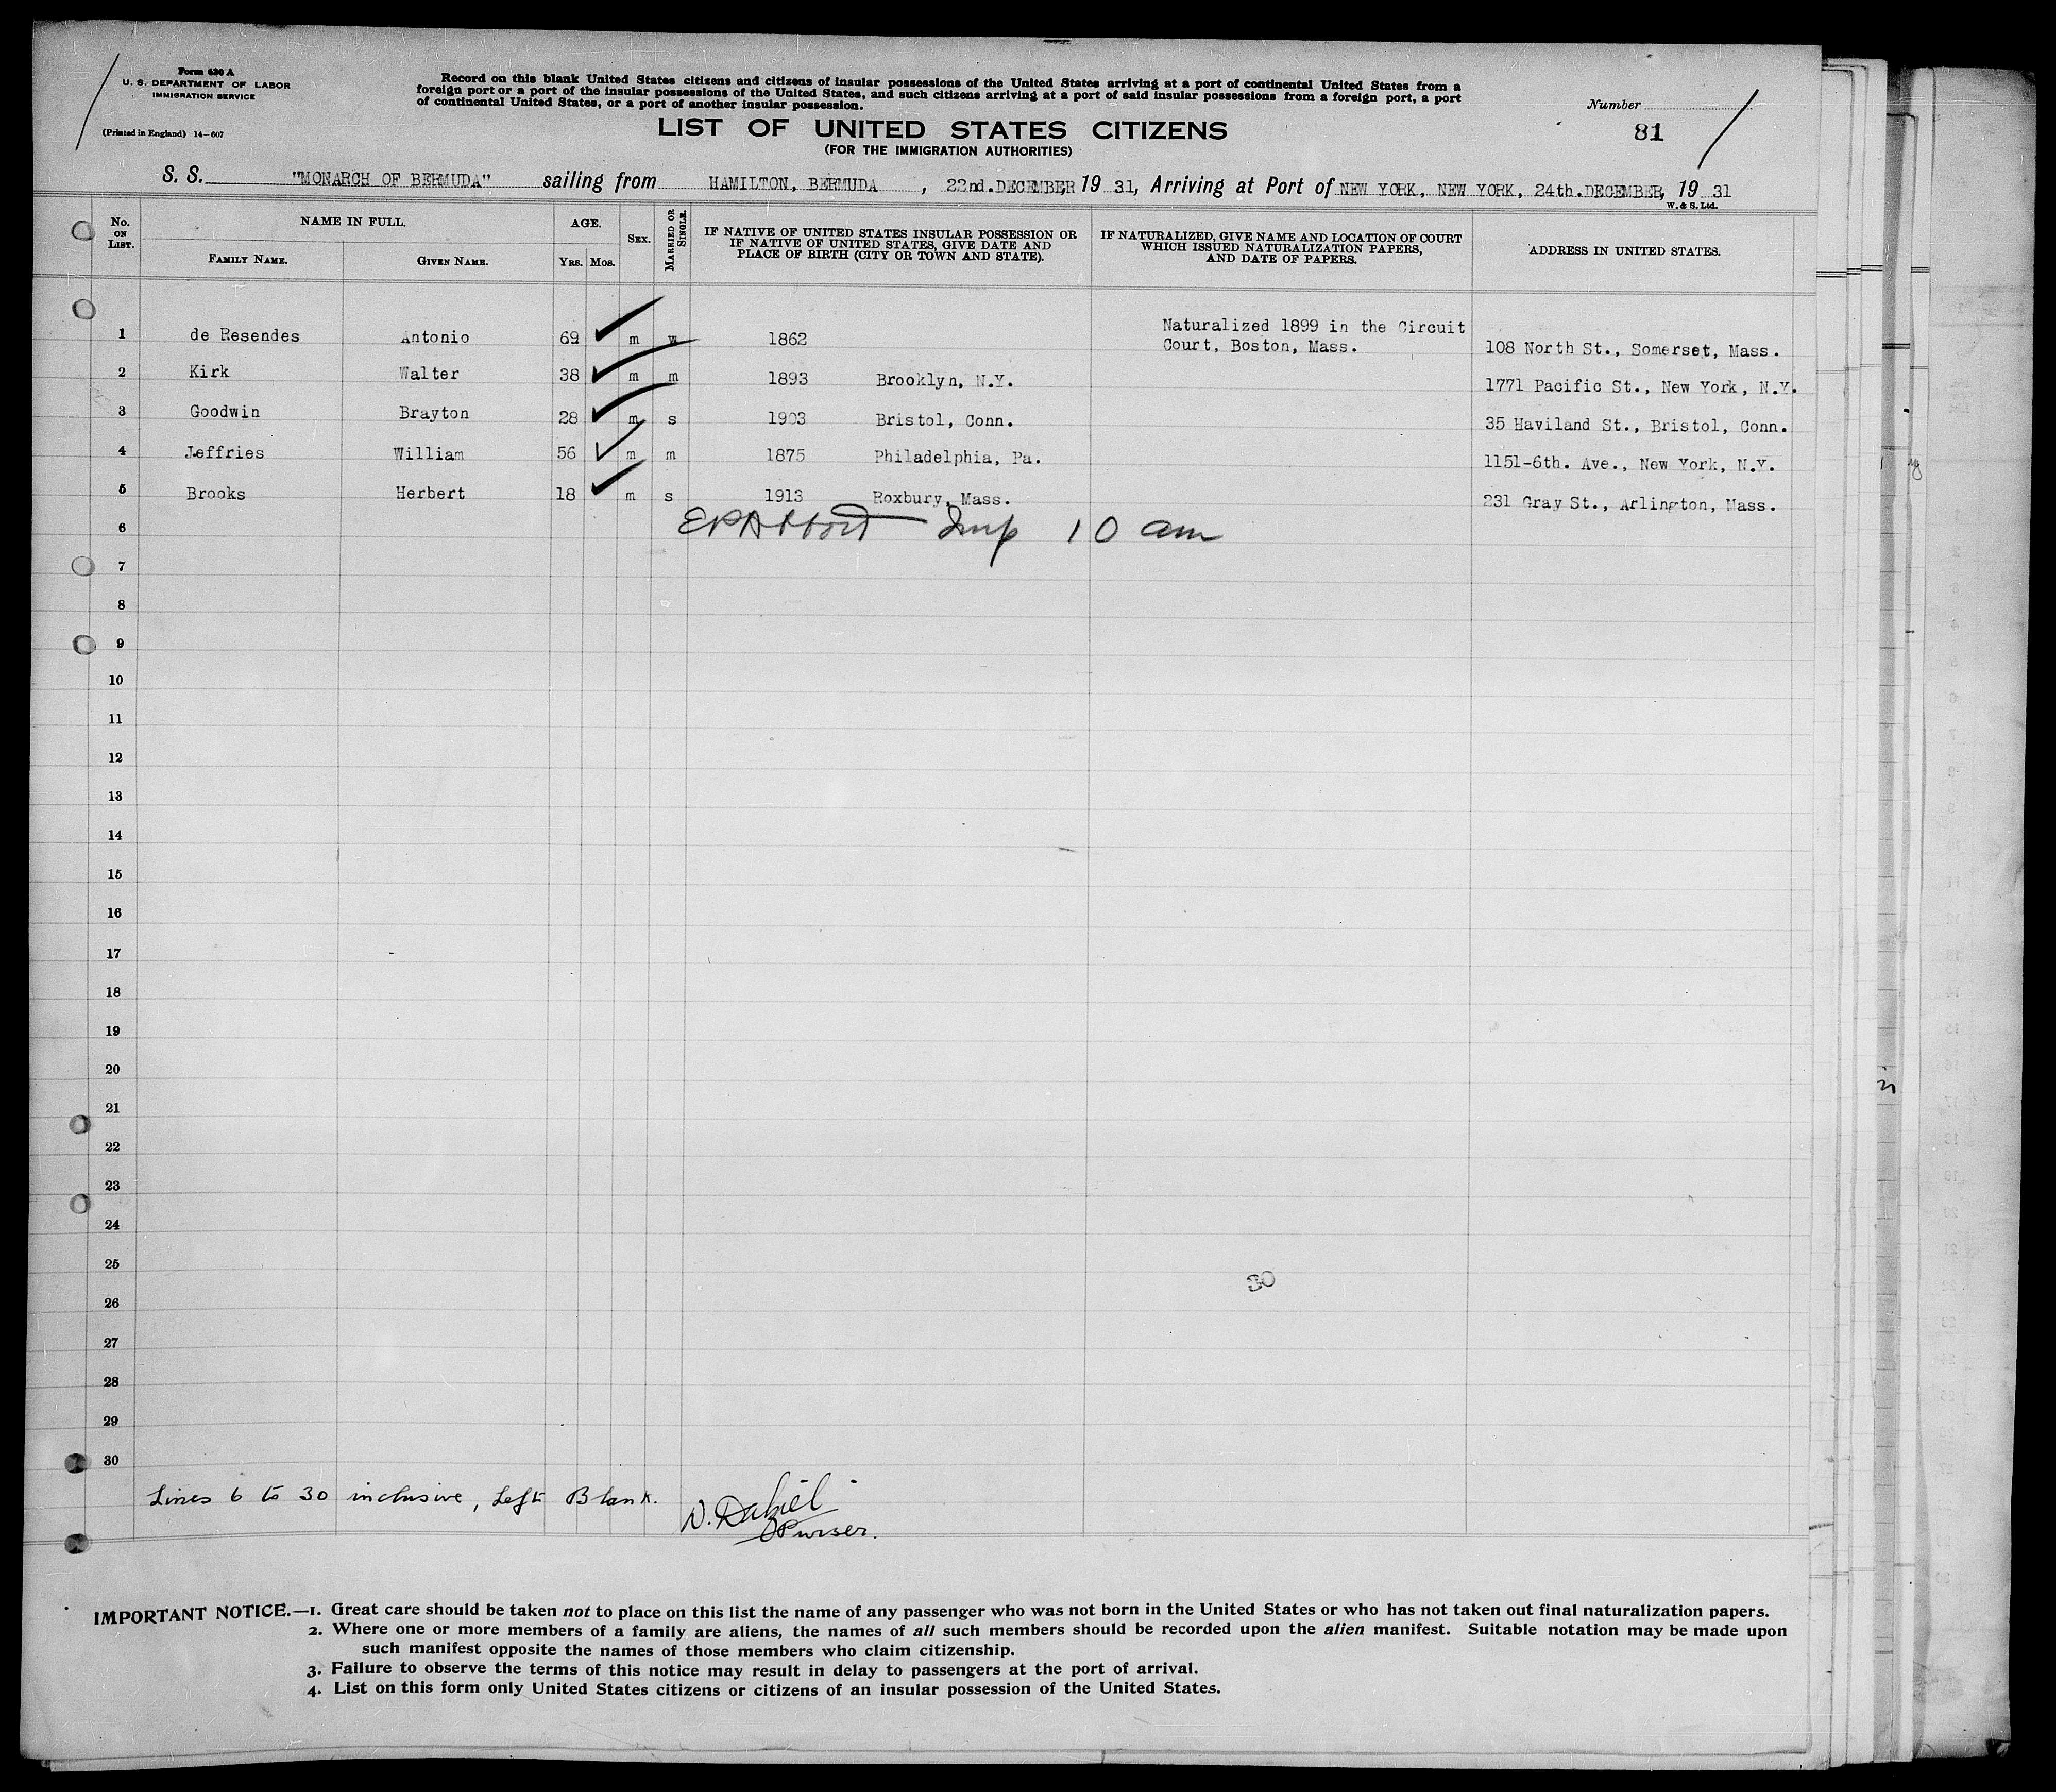 Form 630 A
U. S. DEPARTMENT OF LABOR
IMMIGRATION SERVICE
(Printed in England) 14—607
Record on this blank United States citizens and citizens of insular possessions of the United States arriving at a port of continental United States from a
foreign port or a port of the insular possessions of the United States, and such citizens arriving at a port of said insular possessions from a foreign port, a port
of continental United States, or a port of another insular possession.
Number
81
LIST OF UNITED STATES CITIZENS
(FOR THE IMMIGRATION AUTHORITIES)
S. S. "MONARCH OF BERMUDA" sailing from HAMILTON, BERMUDA , 22nd.DECEMBER 19 31, Arriving at Port of NEW YORK, NEW YORK, 24th.DECEMBER, 19 31
W. & S. Ltd.
No. ON LIST. NAME IN FULL. AGE. SEX. MARRIED OR SINGLE. IF NATIVE OF UNITED STATES INSULAR POSSESSION OR IF NATIVE OF UNITED STATES, GIVE DATE AND PLACE OF BIRTH (CITY OR TOWN AND STATE). IF NATURALIZED, GIVE NAME AND LOCATION OF COURT WHICH ISSUED NATURALIZATION PAPERS, AND DATE OF PAPERS. ADDRESS IN UNITED STATES.
FAMILY NAME. GIVEN NAME. YRS. MOS.
1 de Resendes Antonio 69 m w 1862 Naturalized 1899 in the Circuit Court, Boston, Mass. 108 North St., Somerset, Mass.
2 Kirk Walter 38 m m 1893 Brooklyn, N.Y. 1771 Pacific St., New York, N.Y.
3 Goodwin Brayton 28 m s 1903 Bristol, Conn. 35 Haviland St., Bristol, Conn.
4 Jeffries William 56 m m 1875 Philadelphia, Pa. 1151-6th. Ave., New York, N.Y.
5 Brooks Herbert 18 m s 1913 Roxbury, Mass. 231 Gray St., Arlington, Mass.
6 Insp 10 am
7
8
9
10
11
12
13
14
15
16
17
18
19
20
21
22
23
24
25
30
26
27
28
29
30
Lines 6 to 30 inclusive, Left Blank.
Purser.
IMPORTANT NOTICE.—1. Great care should be taken not to place on this list the name of any passenger who was not born in the United States or who has not taken out final naturalization papers.
2. Where one or more members of a family are aliens, the names of all such members should be recorded upon the alien manifest. Suitable notation may be made upon
such manifest opposite the names of those members who claim citizenship.
3. Failure to observe the terms of this notice may result in delay to passengers at the port of arrival.
4. List on this form only United States citizens or citizens of an insular possession of the United States.